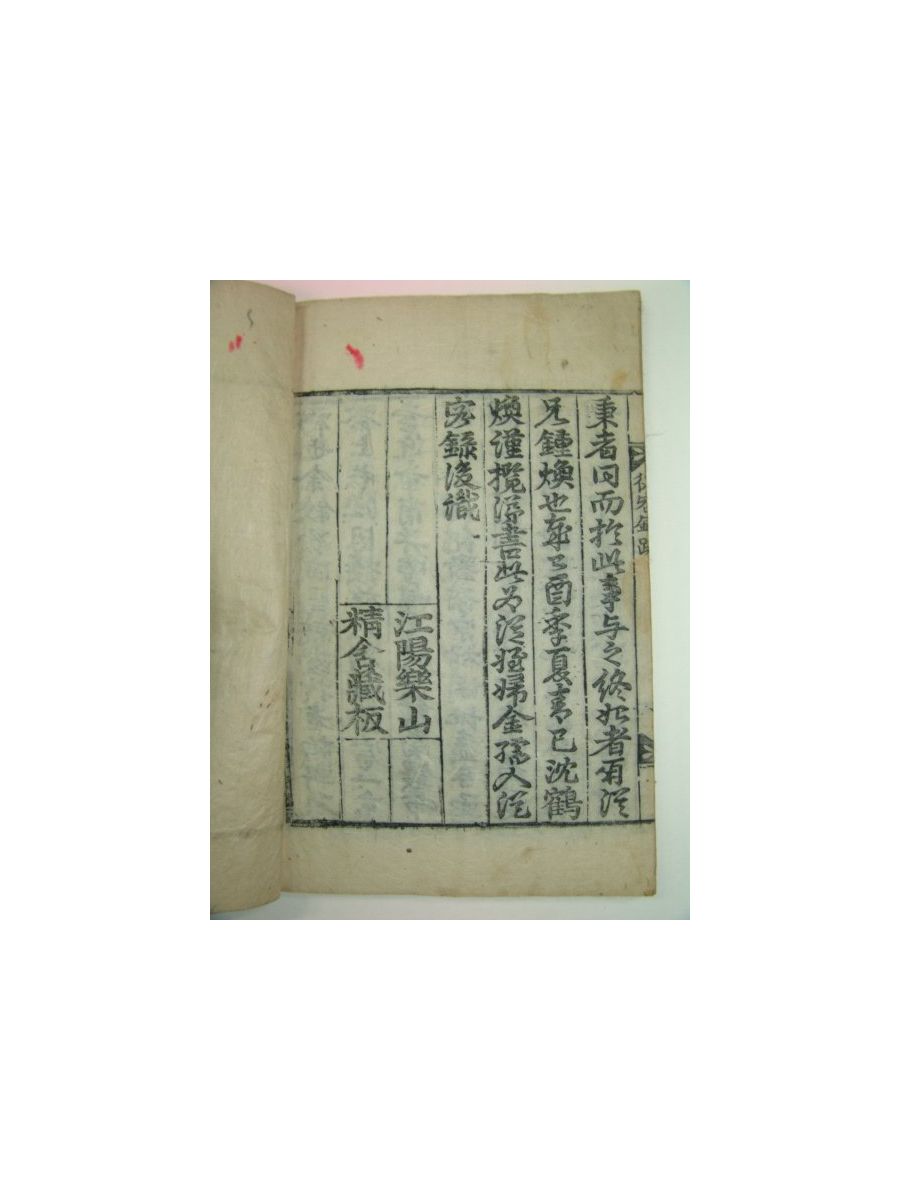 秉者同而於此事与之終始者有從
兄鍾煥也歲己酉季夏青已沈鶴
煥謹攬涕書此爲從姪婦金孺人從
容錄後識
江陽樂山
精舍藏板